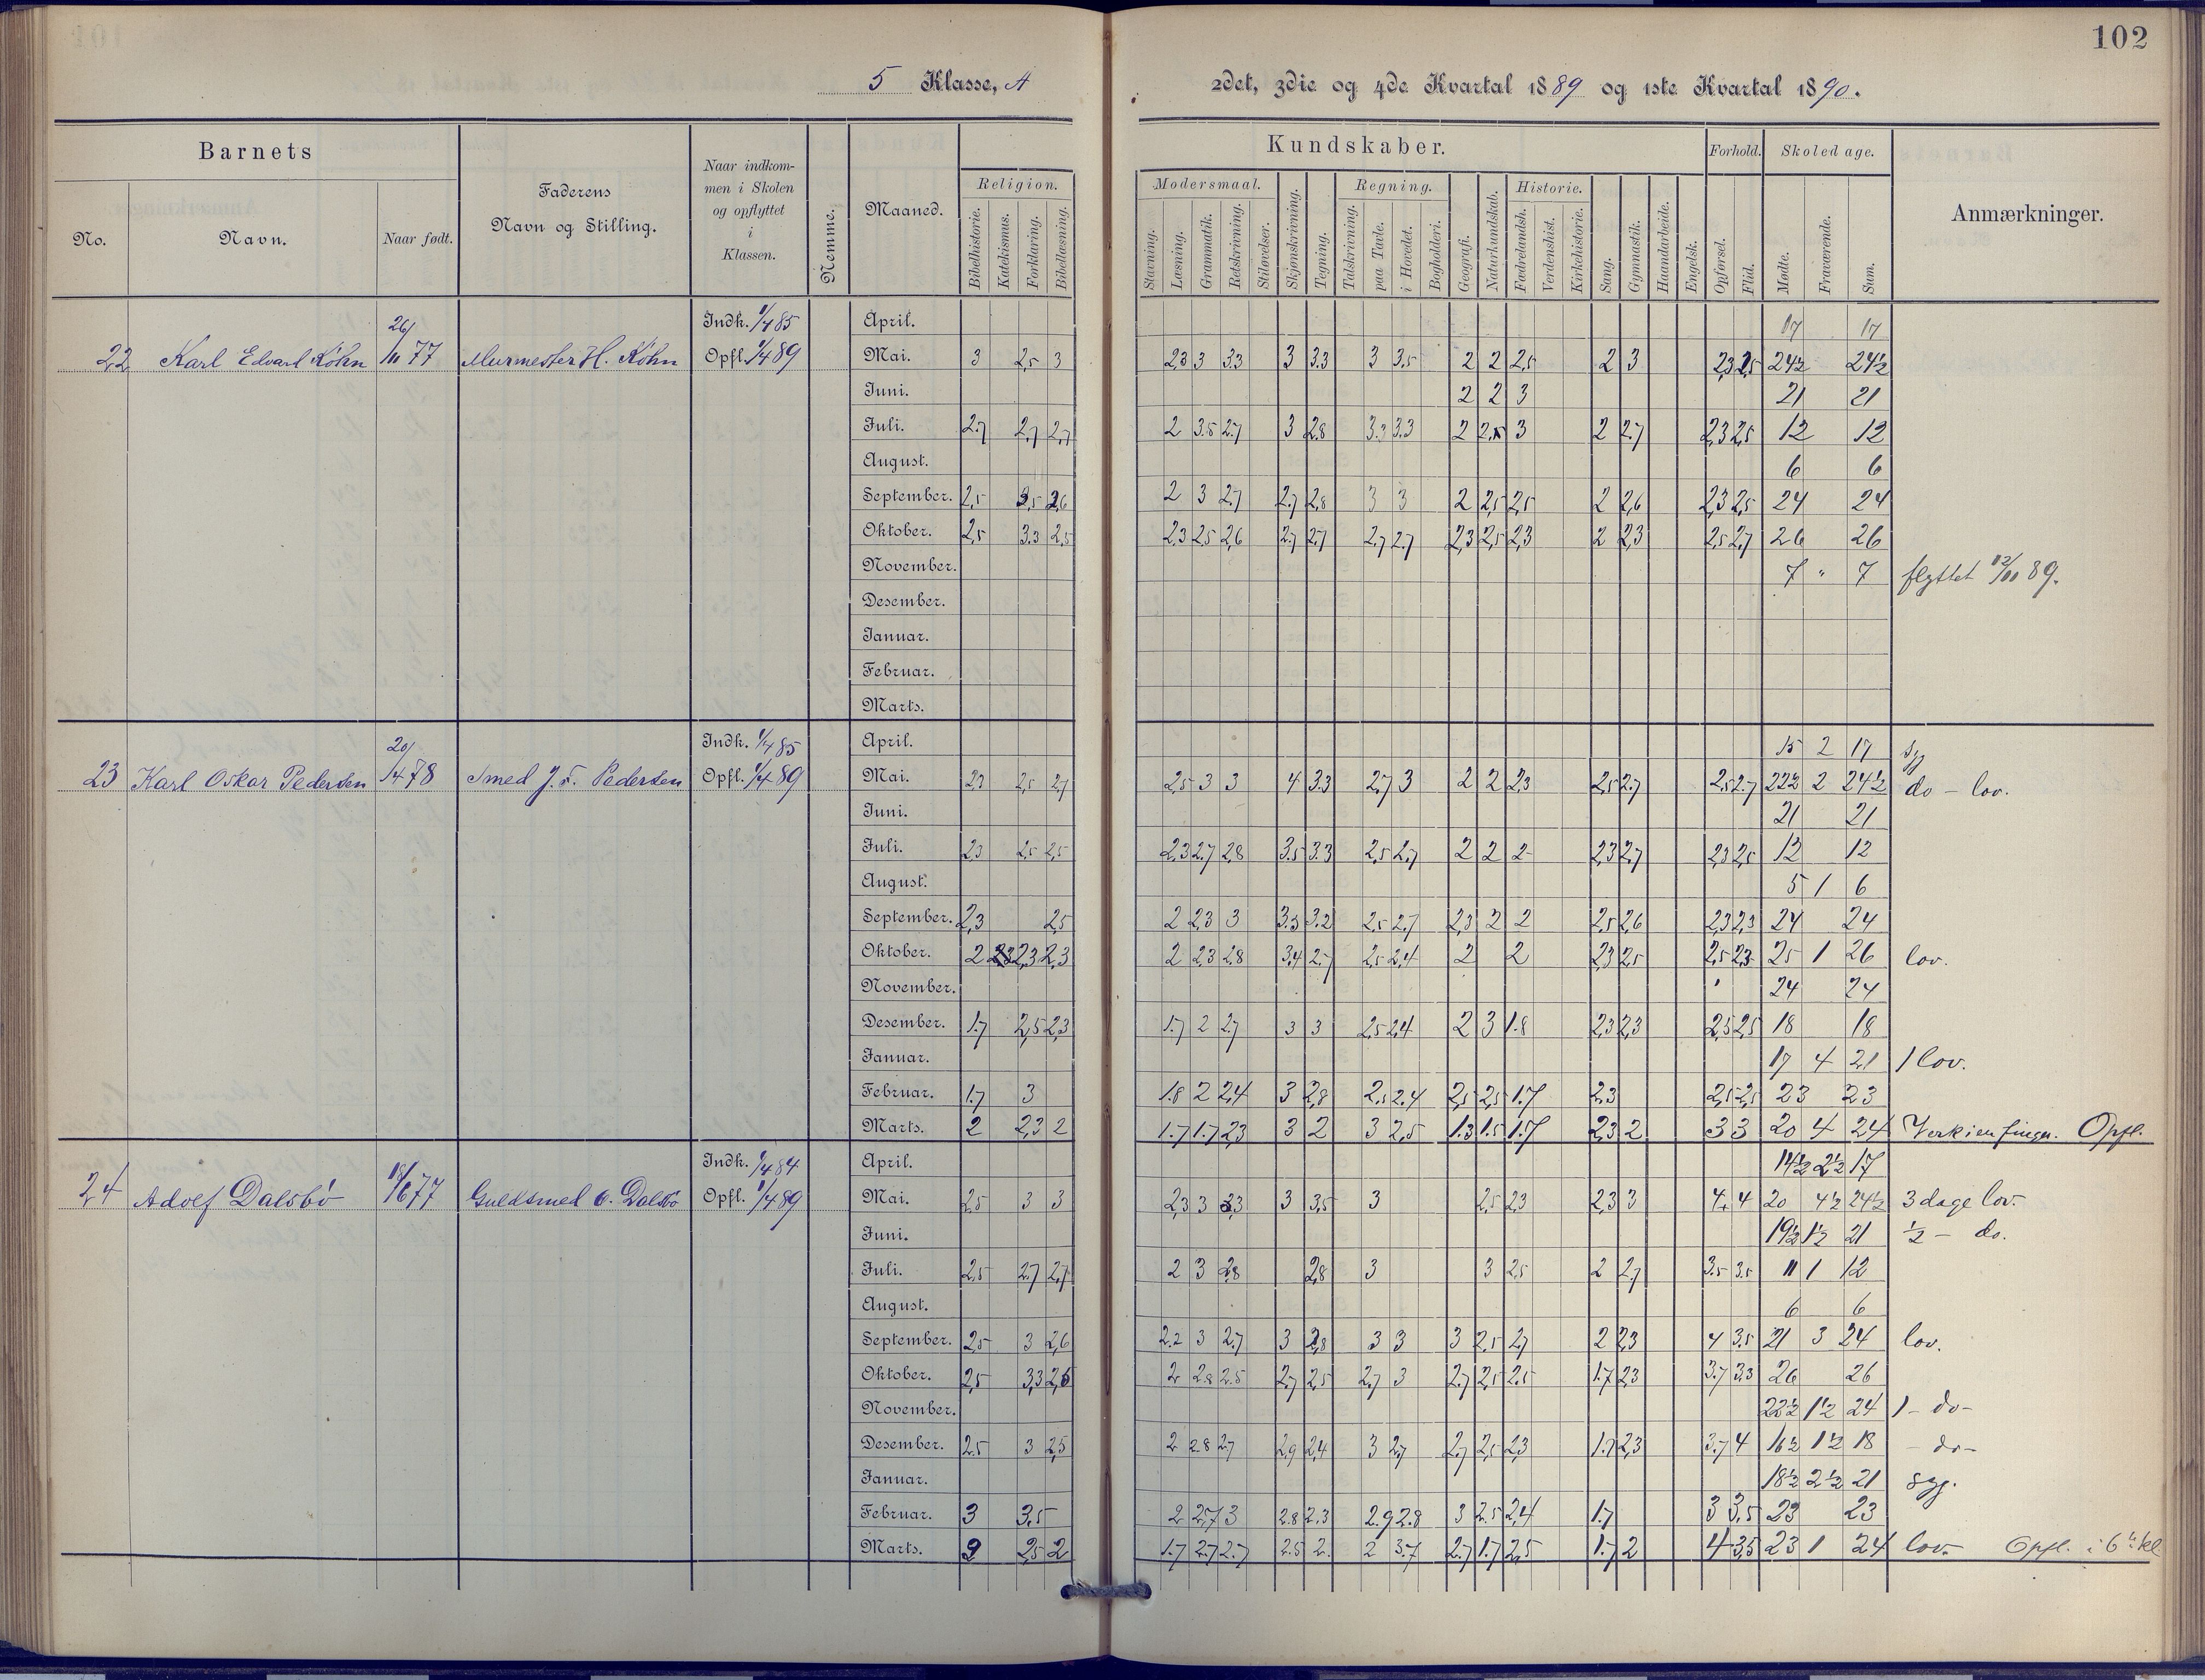 102
5 Klasse, A
2det, 3die og 4de Kvartal 1889 og 1ste Kvartal 1890.
Barnets
No.
Navn.
Naar født.
Faderens
Navn og Stilling.
Naar indkom-
men i Skolen
og opflyttet
i
Klassen.
Nemme.
Maaned.
Religion.
Bibelhistorie.
Katekismus.
Forklaring.
Bibellæsning.
Kundskaber.
Modersmaal.
Stavning.
Læsning.
Grammatik.
Retskrivning.
Stiløvelser.
Skjønskrivning.
Tegning.
Regning.
Talskrivning.
paa Tavle.
i Hovedet.
Bogholderi.
Geografi.
Naturkundskab.
Historie.
Fædrelandsh.
Verdenshist.
Kirkehistorie.
Sang.
Gymnastik.
Haandarbeide.
Engelsk.
Forhold.
Opførsel.
Flid.
Skoledage.
Mødte.
Fraværende.
Sum.
Anmærkninger.
22 Karl Edvard Köhn 26/11 77 Murmester H. Köhn Indk. 1/4 85 Opfl. 1/4 89
April. 17 17
Mai. 3 2,5 3 2,3 3 3.3 3 3.3 3 3.5 2 2 2,5 2 3 2,3 2,5 24½ 24½
Juni. 2 2 3 21 21
Juli. 2.7 2,7 2,7 2 3.5 2.7 3 2.8 3.3 3.3 2 3 2 2.7 2,3 2,5 12 12
August. 6 6
September. 2,5 2,6 2 3 2.7 2.7 2,8 3 3 2 2,5 2,5 2 2,6 2,3 2,5 24 24
Oktober. 2,5 3.3 2,5 2,3 2,5 2,6 2.7 2,7 2.7 2.7 2,3 2,5 2,3 2 2,3 2,5 2,7 26 26
November. 7 " 7 flyttet 12/11 89.
Desember.
Januar.
Februar.
Marts.
23 Karl Oskar Pedersen 20/4 78 Smed J. F. Pedersen Indk. 1/4 85 Opfl. 1/4 89
April. 15 2 17 syg
Mai. 2,3 2,5 2,7 2,5 3 3 4 3.3 2,7 3 2 2 2,3 2,5 2.7 2,5 2.7 22½ 2 24½ do - lov.
Juni. 21 21
Juli. 2,3 2,5 2,5 2,3 2.7 2,8 3.5 3.3 2,5 2,7 2 2 2 2,3 2,7 2,3 2,5 12 12
August. 5 1 6
September. 2,3 2,5 2 2,3 3 3.3 3.2 2,5 2.7 2,3 2 2 2,5 2,6 2,3 2,3 24 24
Oktober. 2 2,3 2,3 2 2,3 2,8 3,4 2.7 2,5 2,4 2 2 2,3 2,5 2,5 2,3 25 1 26 lov.
November. 24 24
Desember. 1.7 2,5 2,3 1.7 2 2.7 3 3 2,5 2,4 2 3 1.8 2,3 2,3 2,5 2,5 18 18
Januar. 17 4 21 1 lov.
Februar. 1.7 3 1.8 2 2,4 3 2,8 2,5 2.4 2,5 2,5 1.7 2.3 2,5 2,5 23 23
Marts. 2 2,3 2 1.7 1.7 2,3 3 2 3 2,5 1.3 1.5 1.7 2,3 2 3 3 20 4 24 Verk i en finger. Opfl.
24 Adolf Dalsbö 18/6 77 Guldsmed O. Dalsbö Indk. 1/4 84 Opfl. 1/4 89
April. 14½ 2½ 17
Mai. 2,5 3 3 2,3 3 3,3 3 3,5 3 2,5 2,3 2,3 3 4 4 20 4½ 24½ 3 dage lov.
Juni. 19½ 1½ 21 ½ - do.
Juli. 2,5 2.7 2,7 2 3 2,8 2,8 3 3 2,5 2 2,7 3.5 3.5 11 1 12
August. 6 6
September. 2,5 3 2,6 2.2 3 2.7 3 2,8 3 3 3 2,5 2,7 2 2,3 4 3.5 21 3 24 lov.
Oktober. 2,5 3,3 2,5 2 2.8 2.5 2,7 2,5 2,7 3 2.7 2,5 2.5 1.7 2,3 3.7 3,3 26 26
November. 22½ 1½ 24 1 - do -
Desember. 2.5 3 2,5 2 2.8 2.7 2,9 2,4 3 2,7 2,7 2,5 2,3 1.7 2,3 3.7 4 16½ 1½ 18 - do -
Januar. 18½ 2½ 21 syg.
Februar. 3 3.5 2 2.7 3 2.8 2.3 2.9 2.8 3 2.5 2,4 1.7 3 3,5 23 23
Marts. 2 2,5 2 1.7 2.7 2.7 2.5 2. 2 3.7 2.7 1.7 2,5 1.7 2 4 3,5 23 1 24 lov. Opfl. i 6te kl